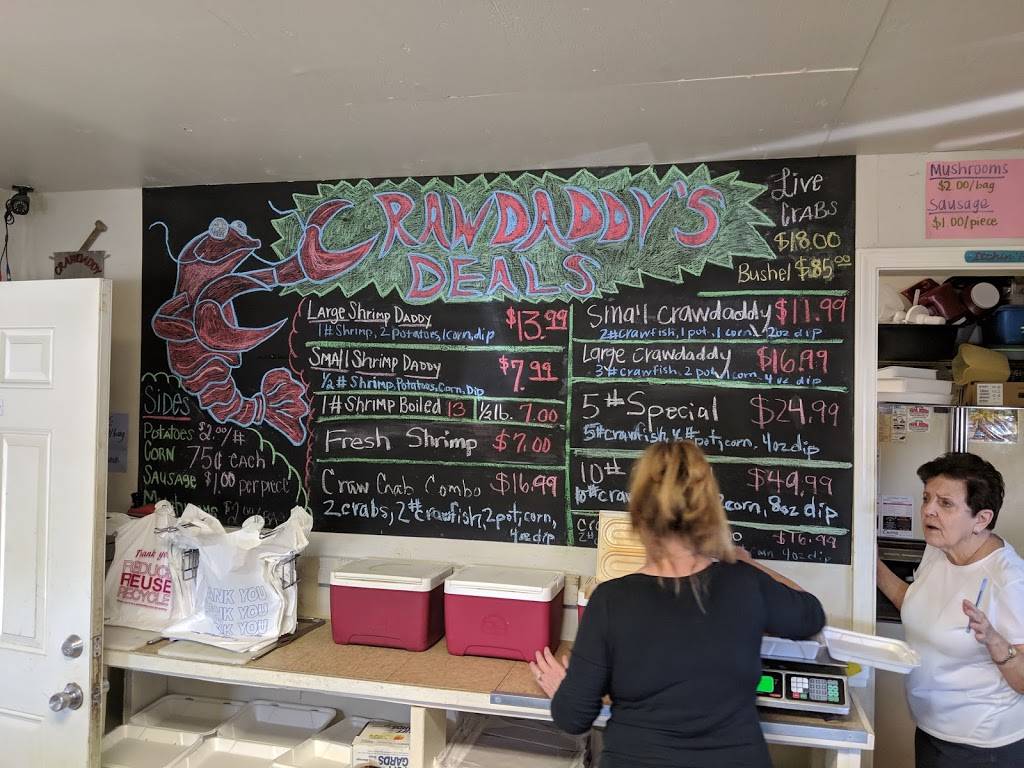 CRAWDADDY'S
DEALS
Live
CRABS
$18.00
Bushel $85.00
Large Shrimp DADDY $13.99
1# Shrimp, 2 potatoes, 1 corn, dip
SMAll SHRIMP DADDY $7.99
1/2 # Shrimp, Potatoes, Corn, Dip
1# Shrimp Boiled 13 1/2 lb. 7.00
Fresh Shrimp $7.00
Craw Crab Combo $16.99
2 crabs, 2# crawfish, 2 pot, corn,
4oz dip
Small crawdaddy $11.99
2# crawfish, 1 pot, 1 corn, 2oz dip
Large crawdaddy $16.99
3# crawfish, 2 pot, corn, 4oz dip
5# Special $24.99
5# crawfish, pot, corn, 4oz dip
10# $49.99
10# craw corn, 8oz dip
$16.99
4oz dip
Sides
POTATOES $2.00/#
CORN 75¢ each
SAUSAGE $1.00 per piece
MUSHROOMS
$2.00/bag
SAUSAGE
$1.00/piece
CRAWDADDY
Thank you
REDUCE
REUSE
RECYCLE
THANK YOU
THANK YOU
THANK YOU